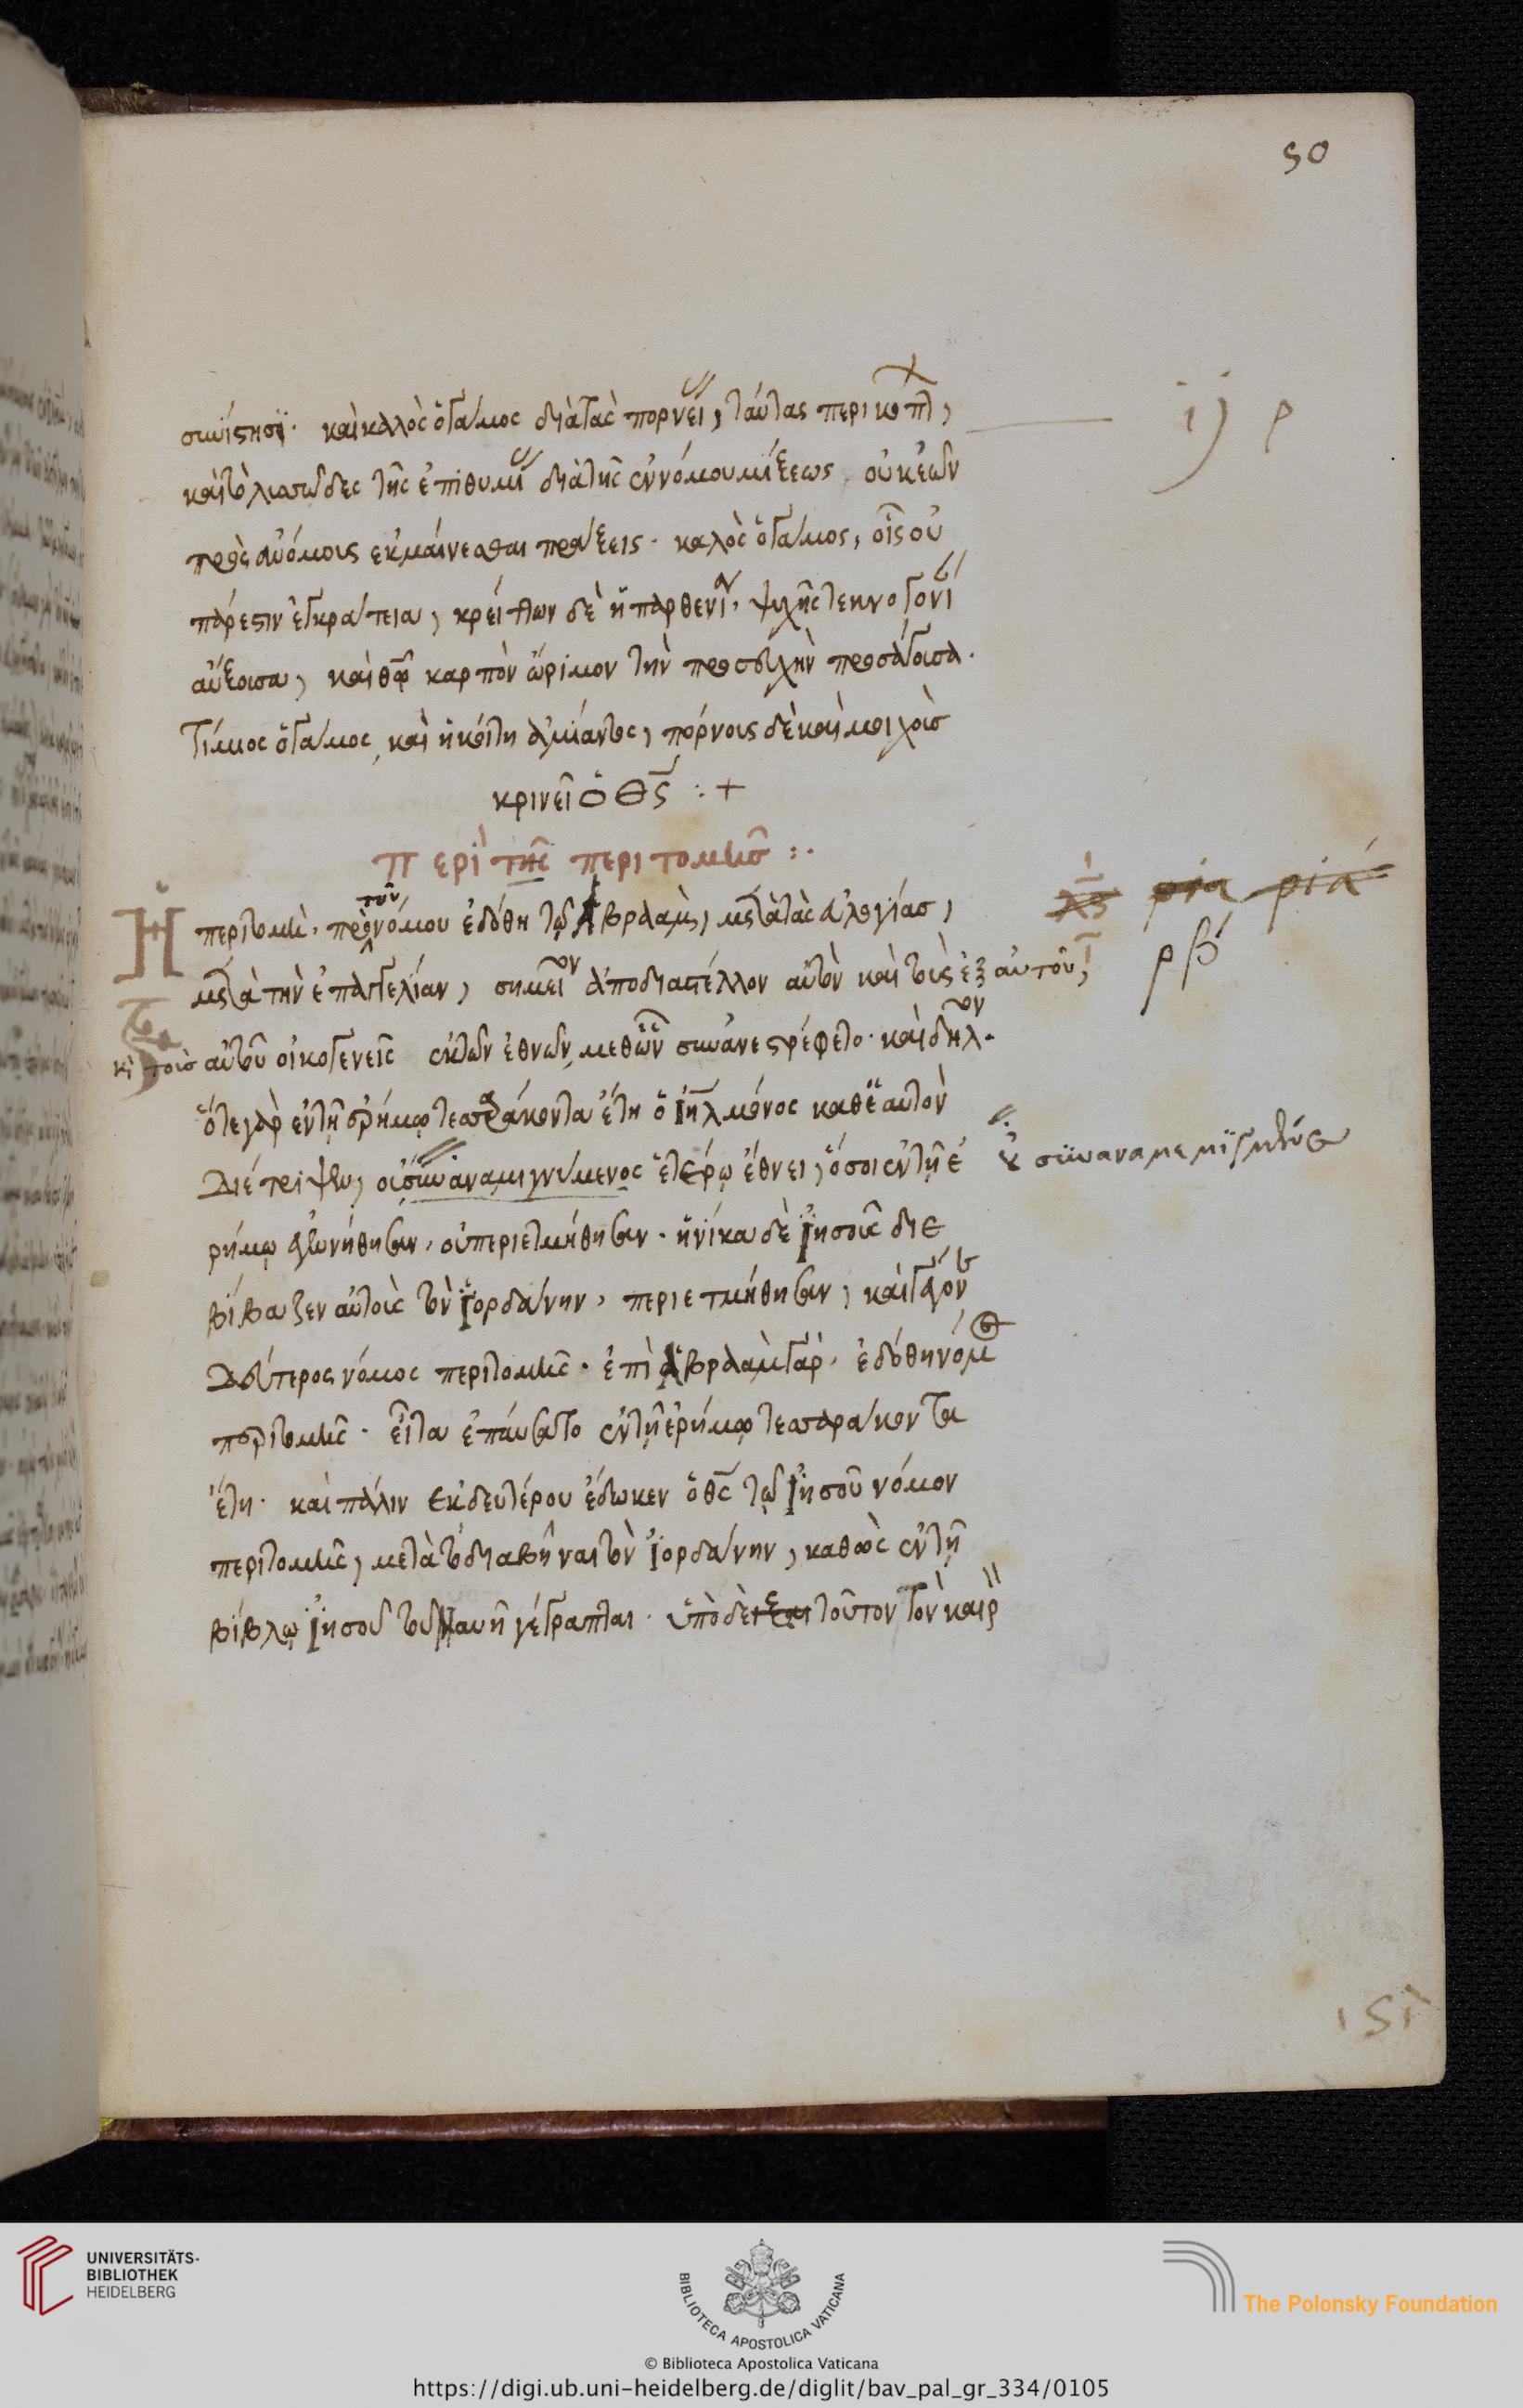 50
συνίστησι. καὶ καλὸς ὁ γάμος διὰ τὰς πορνεί, ταύτας περικόπτ,
καὶ τὸ λυσσῶδες τῆς ἐπιθυμί διὰ τῆς ἐννόμου μίξεως, οὐκ ἐῶν
πρὸς ἀνόμους ἐκμαίνεσθαι πράξεις. καλὸς ὁ γάμος, οἷς οὐ
πάρεστιν ἐγκράτεια, κρείττων δὲ ἡ παρθενία, ψυχῆς τεκνογονί
αὔξουσα, καὶ θῷ καρπὸν ὥριμον τὴν προσευχὴν προσάγουσα.
Τίμιος ὁ γάμος, καὶ ἡ κοίτη ἀμίαντος, πόρνους δὲ καὶ μοιχοὺς
κρινεῖ ὁ θς :+
Περὶ τῆς περιτομῆς :.
Ἡ περιτομὴ, πρὸ τοῦ νόμου ἐδόθη τῷ Ἀβραὰμ, μετὰ τὰς εὐλογίας,
μετὰ τὴν ἐπαγγελίαν, σημεῖον ἀποδιαστέλλον αὐτὸν καὶ τοὺς ἐξ αὐτοῦ,
κὶ τοὺς αὐτοῦ οἰκογενεῖς ἐκ τῶν ἐθνῶν, μεθ' ὧν συνανεστρέφετο. καὶ δῆλον.
ὅτε γὰρ ἐν τῇ ἐρήμῳ τεσσαράκοντα ἔτη ὁ ἰηλ μόνος καθ' ἑαυτὸν
διέτριψεν, οὐ συναναμιγνύμενος ἑτέρῳ ἔθνει, ὅσοι ἐν τῇ ἐ
ρήμῳ ἐγεννήθησαν, οὐ περιετμήθησαν. ἡνίκα δὲ ἰησοῦς διε
βίβαζεν αὐτοὺς τὸν ἰορδάνην, περιετμήθησαν, καὶ γέγον
δεύτερος νόμος περιτομῆς. ἐπὶ ἀβραὰμ γὰρ, ἐδόθη νόμ
περιτομῆς. εἶτα ἐπαύσατο ἐν τῇ ἐρήμῳ τεσσαράκοντα
ἔτη. καὶ πάλιν ἐκ δευτέρου ἔδωκεν ὁ θς τῷ ἰησοῦ νόμον
περιτομῆς, μετὰ τὸ διαβῆναι τὸν ἰορδάνην, καθὼς ἐν τῇ
βίβλῳ ἰησοῦ τοῦ Ναυῆ γέγραπται. ὑπὸ δὲ τοῦτον τὸν καιρ
ρια ρια
ρβ
UNIVERSITÄTS-
BIBLIOTHEK
HEIDELBERG
BIBLIOTECA APOSTOLICA VATICANA
The Polonsky Foundation
© Biblioteca Apostolica Vaticana
https://digi.ub.uni-heidelberg.de/diglit/bav_pal_gr_334/0105